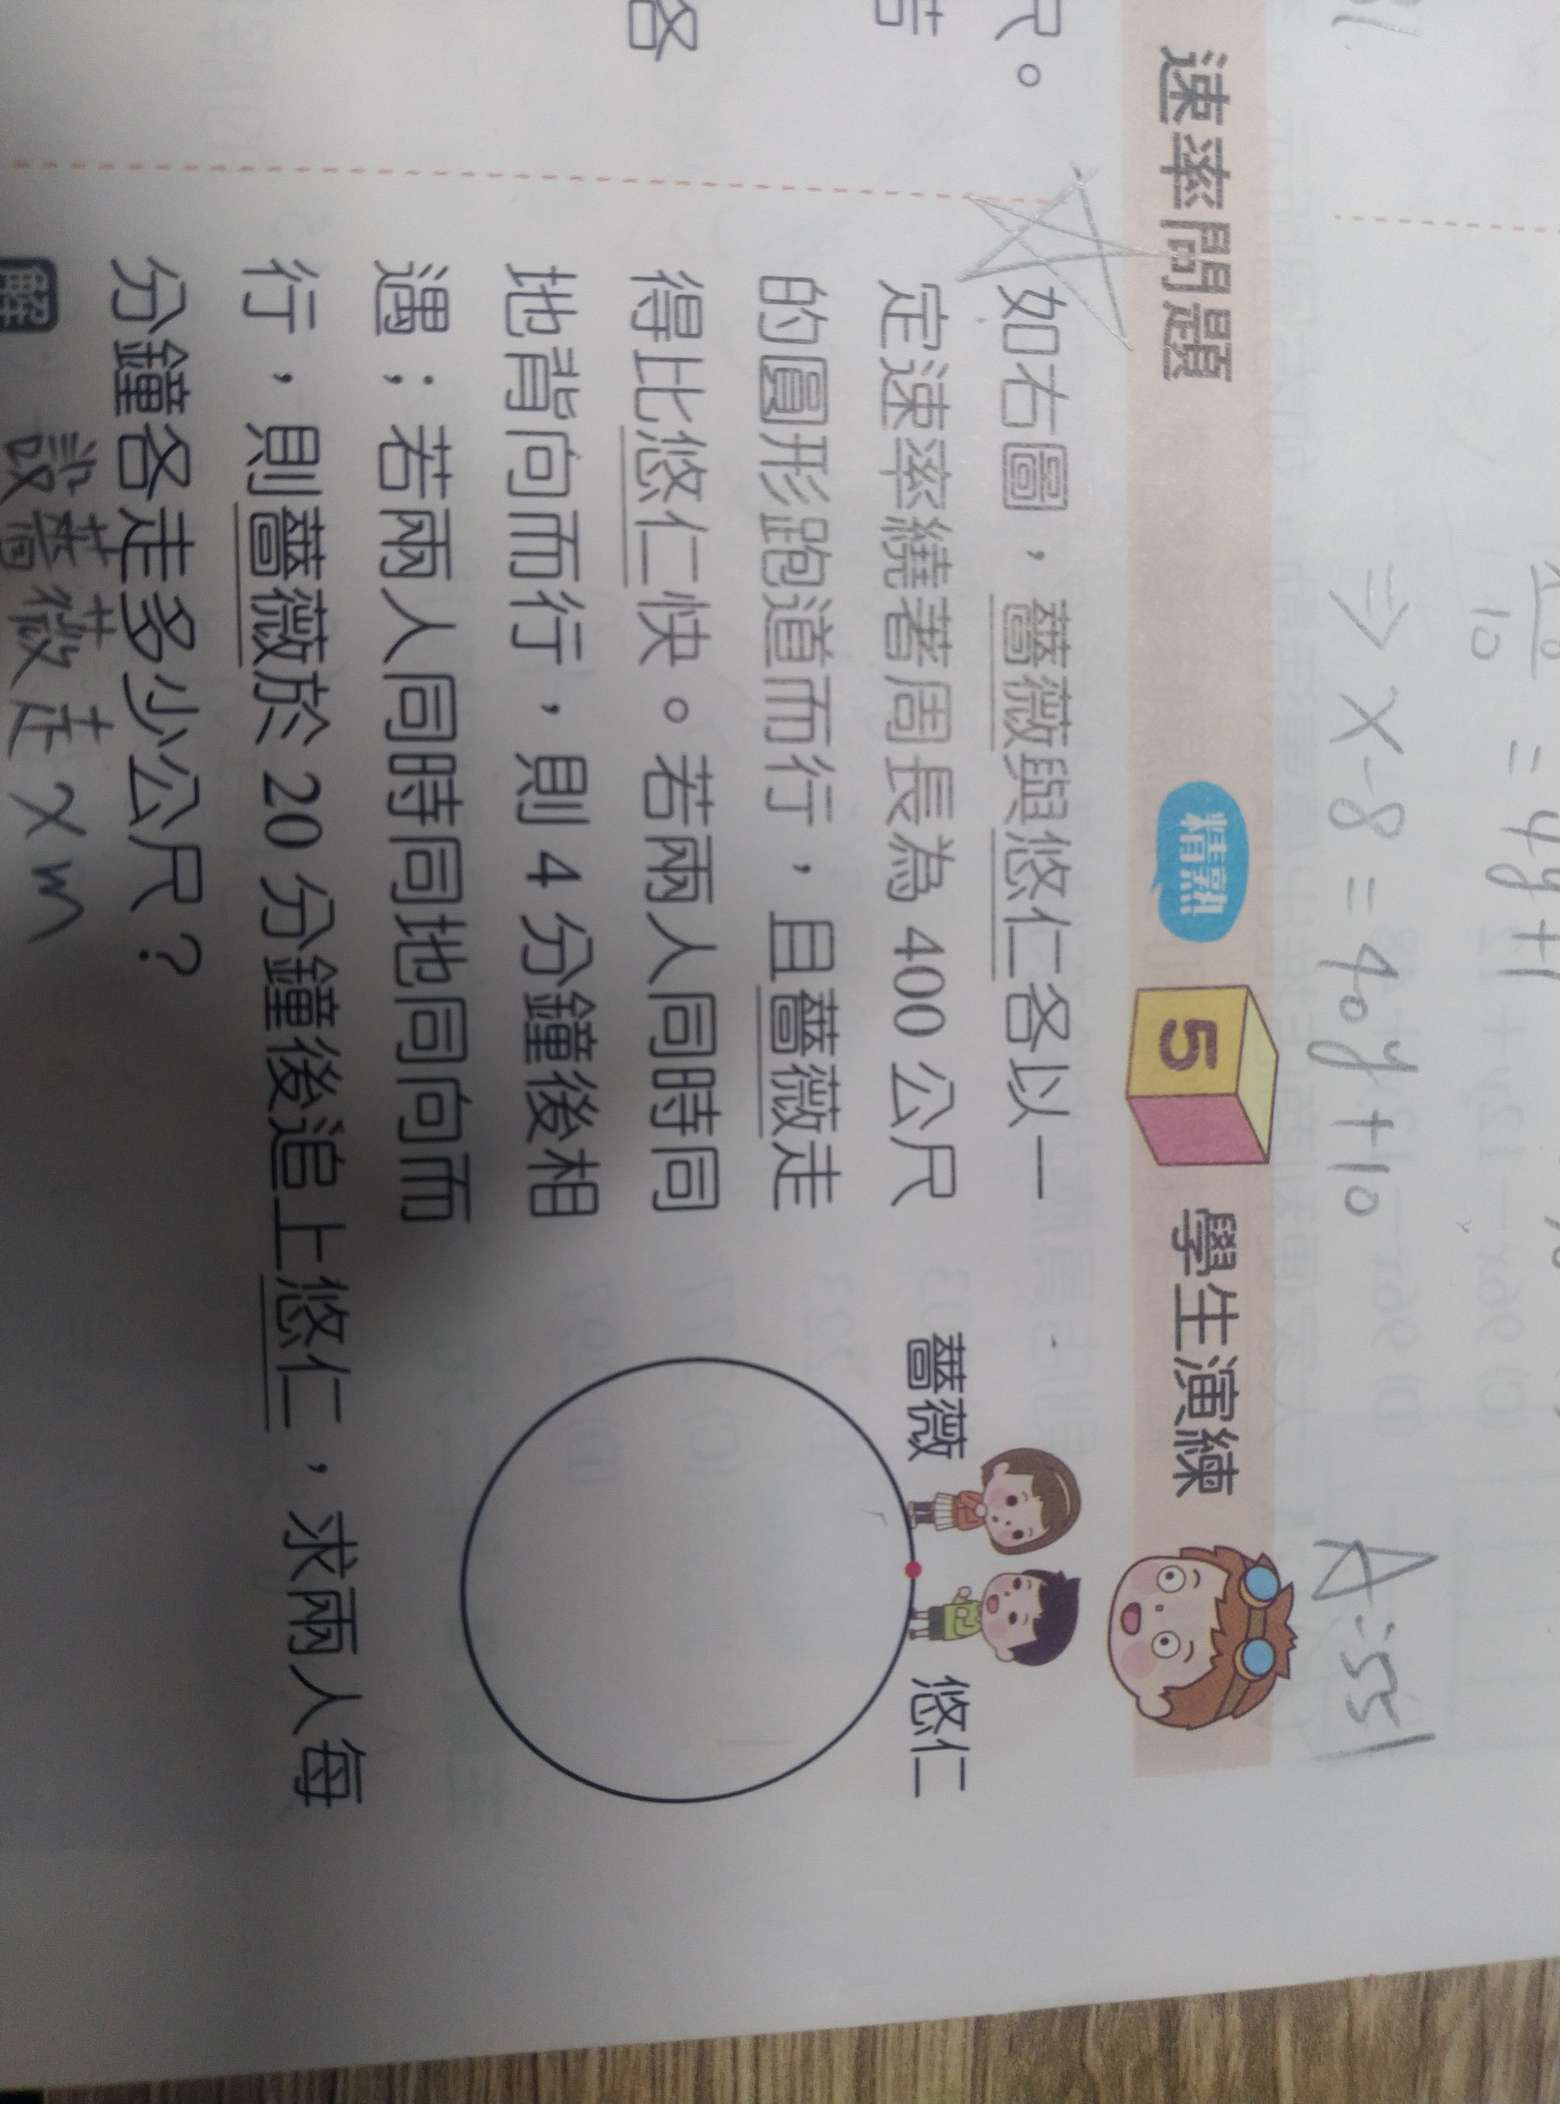 ⇒ x-8 = 4y+10
A: 55
速率問題 精熟 5 學生演練
如右圖，薔薇與悠仁各以一
定速率繞著周長為 400 公尺
的圓形跑道而行，且薔薇走
得比悠仁快。若兩人同時同
地背向而行，則 4 分鐘後相
遇；若兩人同時同地同向而
行，則薔薇於 20 分鐘後追上悠仁，求兩人每
分鐘各走多少公尺？
薔薇
悠仁
解 設薔薇走 x m
尺。
若
各